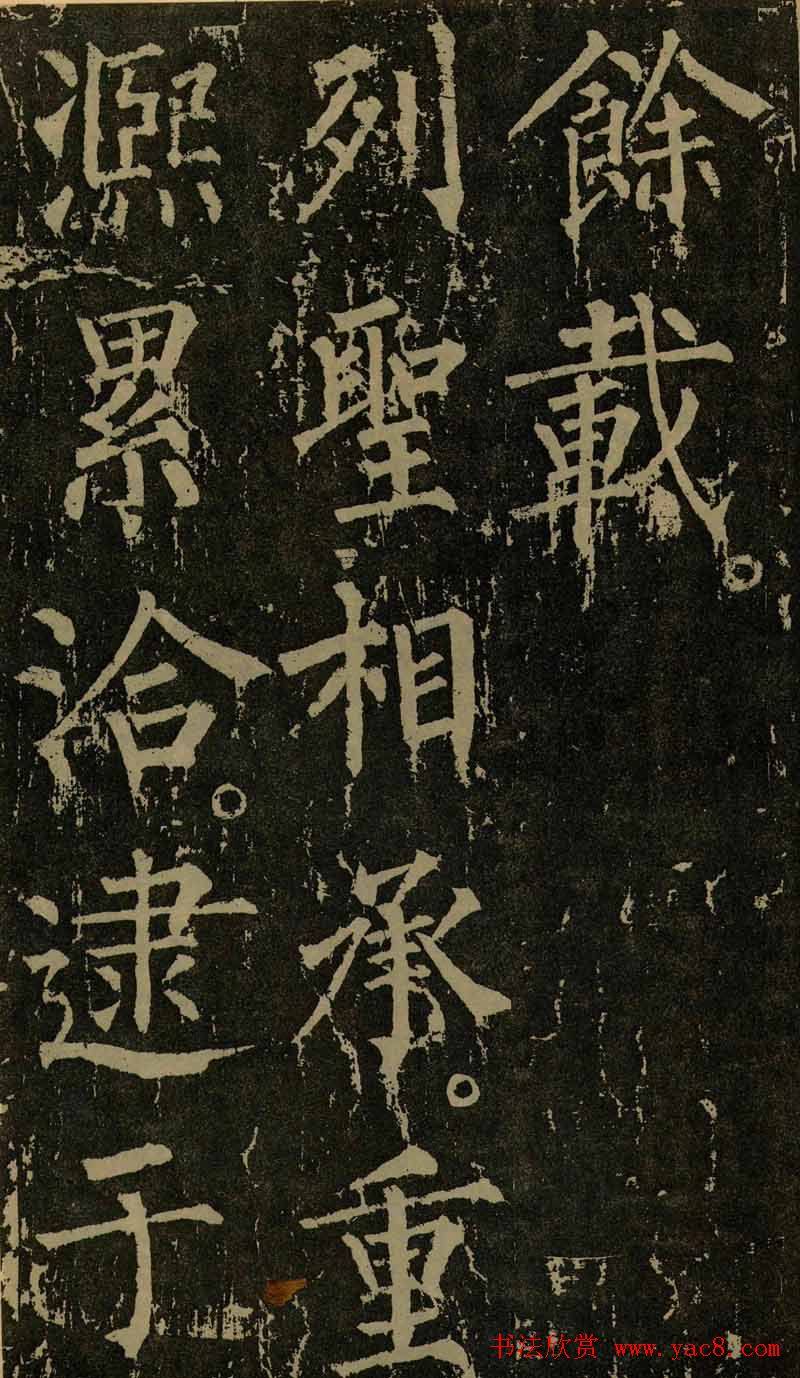 餘載。
列聖相承。重
凞累洽。逮于
书法欣赏 www.yac8.com